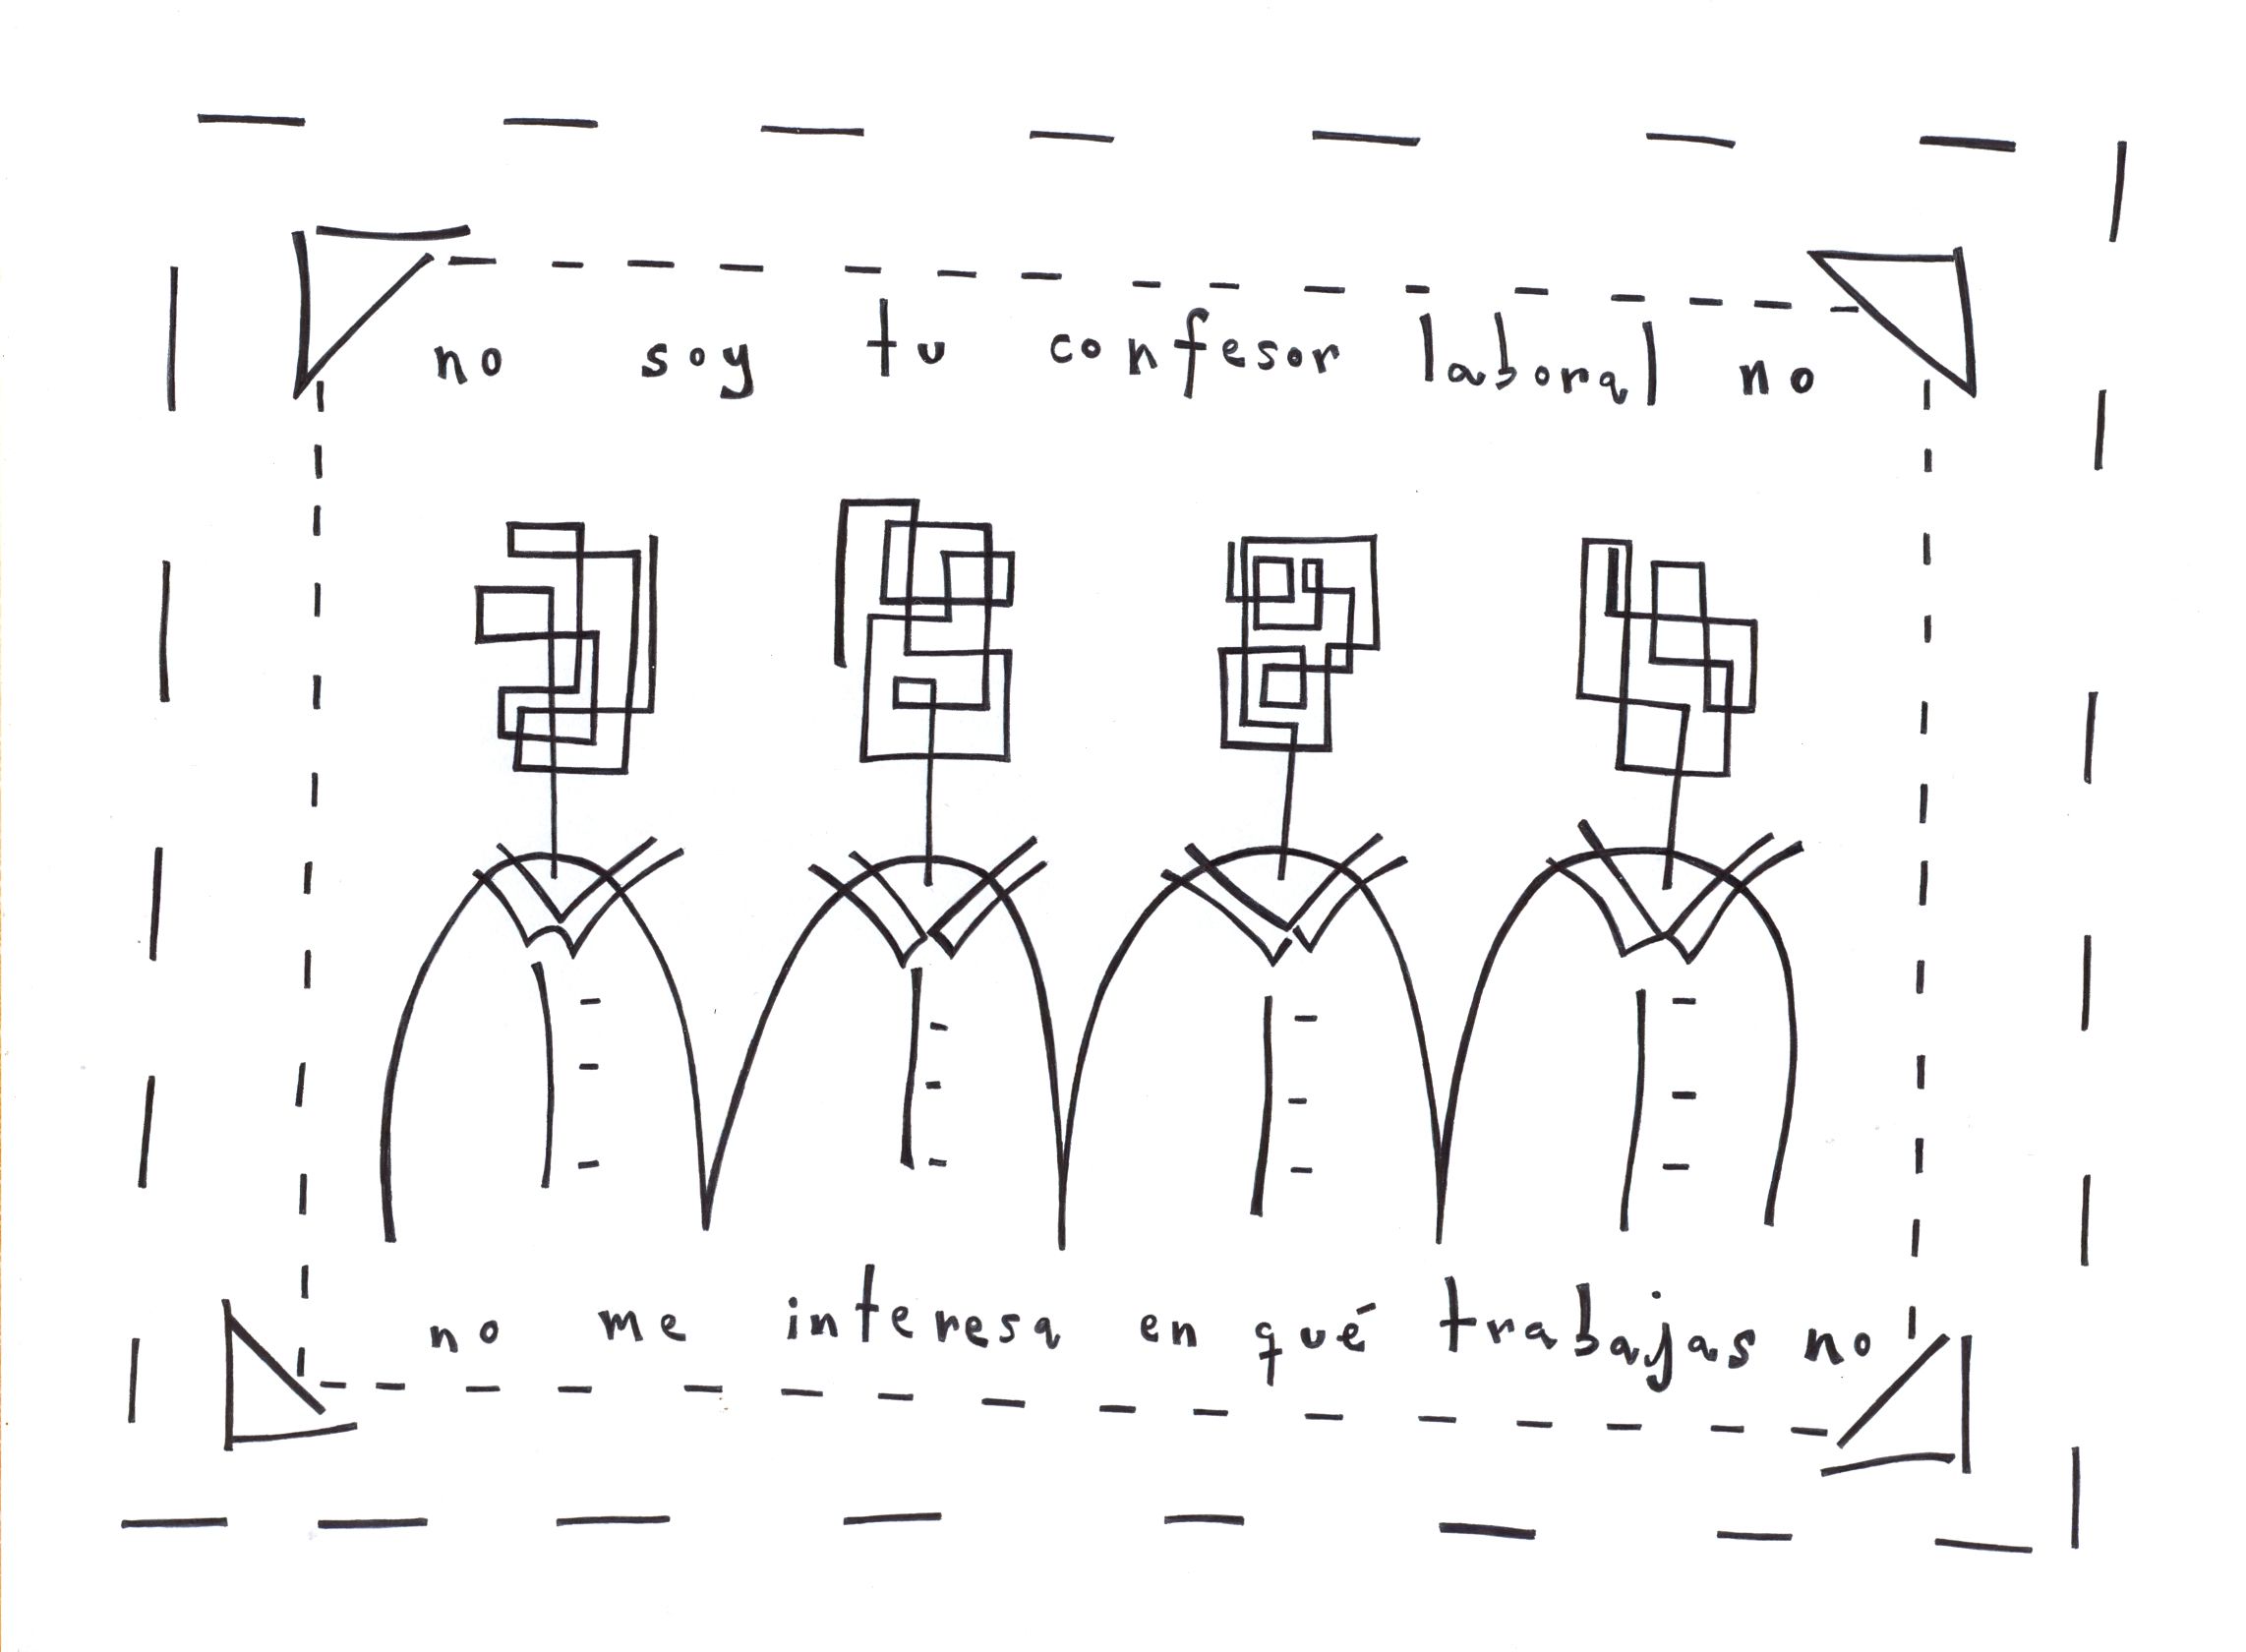 no soy tu confesor laboral no
no me interesa en qué trabajas no